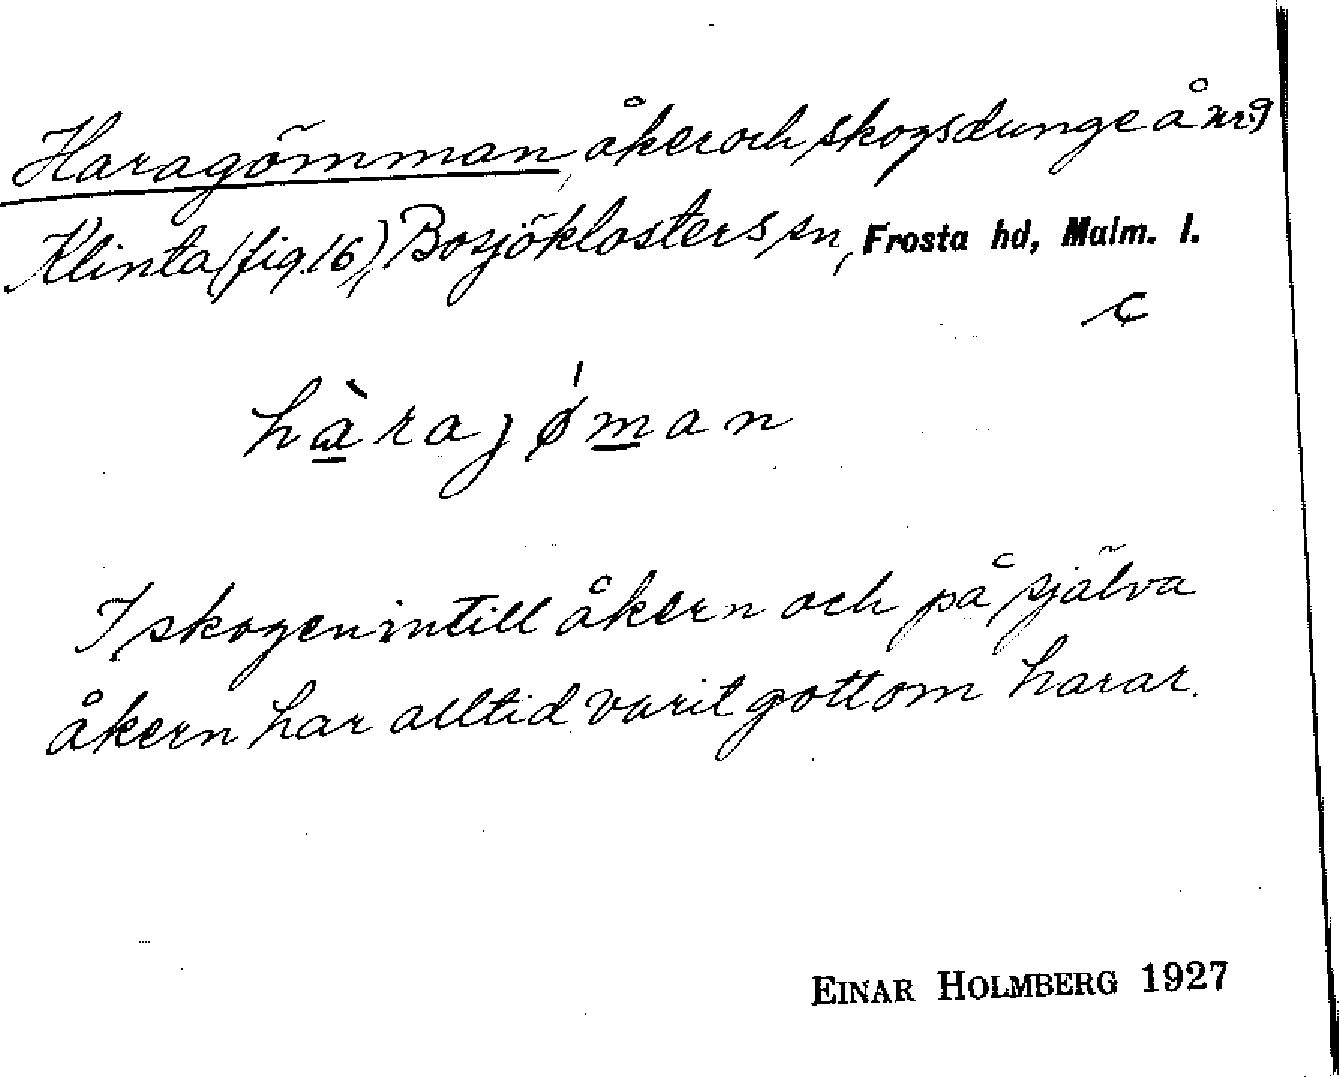 Haragömman, åker och skogsdunge å nr 9
Klinta (fig. 16), Bosjöklosters sn, Frosta hd, Malm. l.
c
hàrajǿman
I skogen intill åkern och på själva
åkern har alltid varit gott om harar.
EINAR HOLMBERG 1927